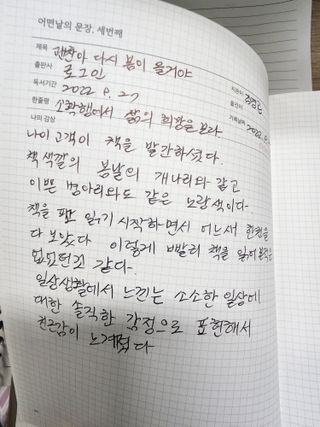 어떤날의 문장, 세번째
제목 괜찮아 다시 봄이 올거야
출판사 로그인
독서기간 2022. 9. 27
한줄평 소확행에서 삶의 희망을 보라
나의 감상
나이 고객이 책을 발간하셨다.
책 색깔의 봄날의 개나리와 같고
이쁜 병아리와도 같은 노랑색이다
책을 읽기 시작하면서 어느새 한권을
다 보았다 이렇게 빨리 책을 읽어
없었던것 같다.
일상생활에서 느끼는 소소한 일상에
대한 솔직한 감정으로 표현해서
친근감이 느껴졌다